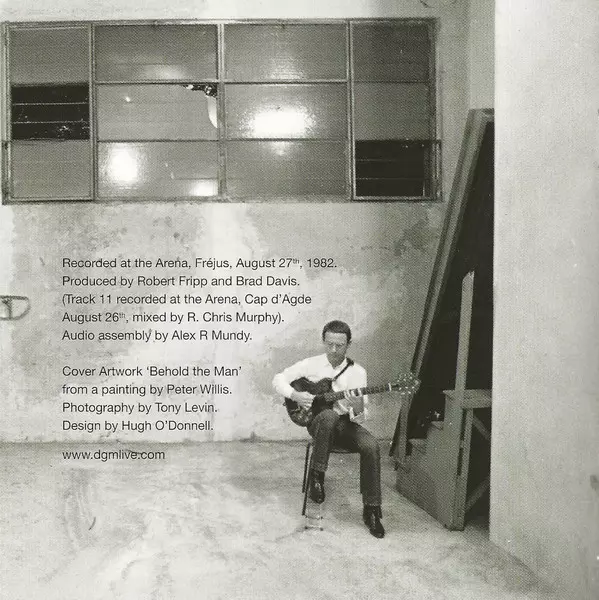 Recorded at the Arena, Fréjus, August 27th, 1982.
Produced by Robert Fripp and Brad Davis.
(Track 11 recorded at the Arena, Cap d’Agde
August 26th, mixed by R. Chris Murphy).
Audio assembly by Alex R Mundy.
Cover Artwork ‘Behold the Man’
from a painting by Peter Willis.
Photography by Tony Levin.
Design by Hugh O’Donnell.
www.dgmlive.com